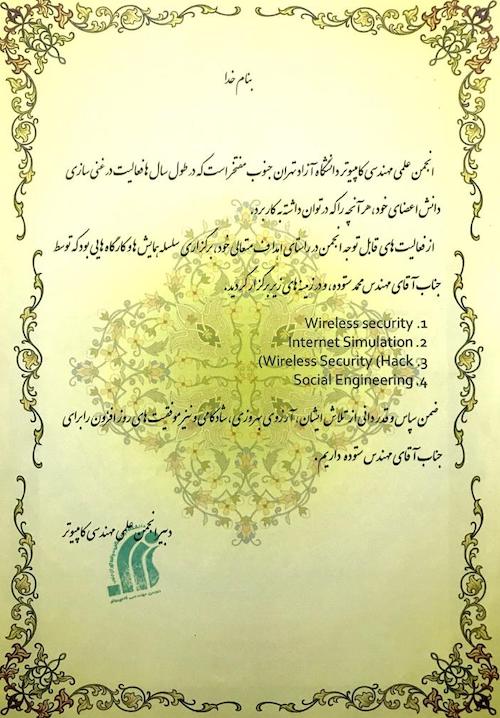 بنام خدا
انجمن علمی مهندسی کامپیوتر دانشگاه آزاد تهران جنوب مفتخر است که در طول سال ها فعالیت در غنی سازی
دانش اعضای خود، هر آنچه را که در توان داشته به کار برد.
از فعالیت های قابل توجه انجمن در راستای اهداف متعالی خود، برگزاری سلسله همایش ها و کارگاه هایی بود که توسط
جناب آقای مهندس محمد ستوده، و در زمینه های زیر برگزار گردید.
1. Wireless security
2. Internet Simulation
3. Wireless Security (Hack)
4. Social Engineering
ضمن سپاس و قدردانی از تلاش ایشان، آرزوی بهروزی، شادکامی و نیز موفقیت های روز افزون را برای
جناب آقای مهندس ستوده داریم.
دبیر انجمن علمی مهندسی کامپیوتر